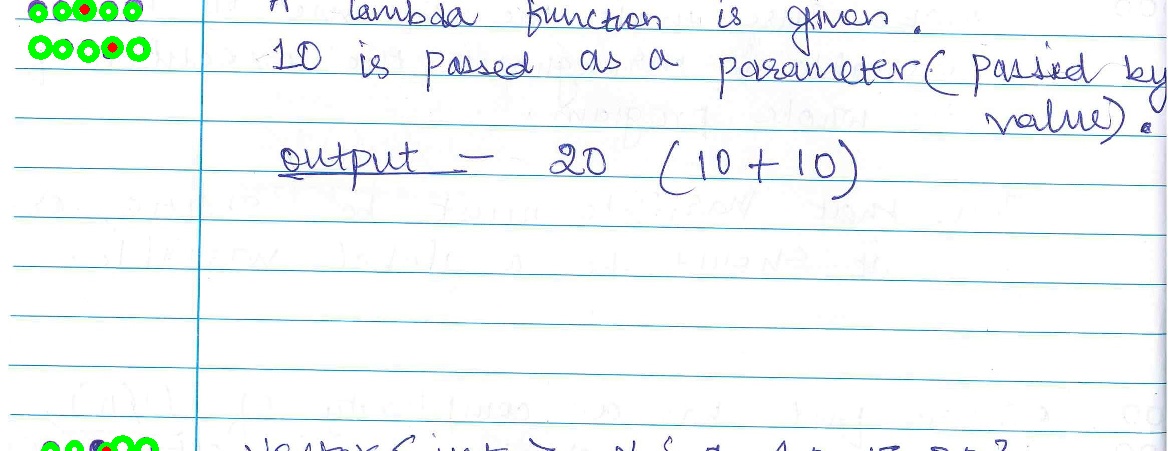 A lambda function is given.
10 is passed as a parameter (passed by
value).
output = 20 (10 + 10)